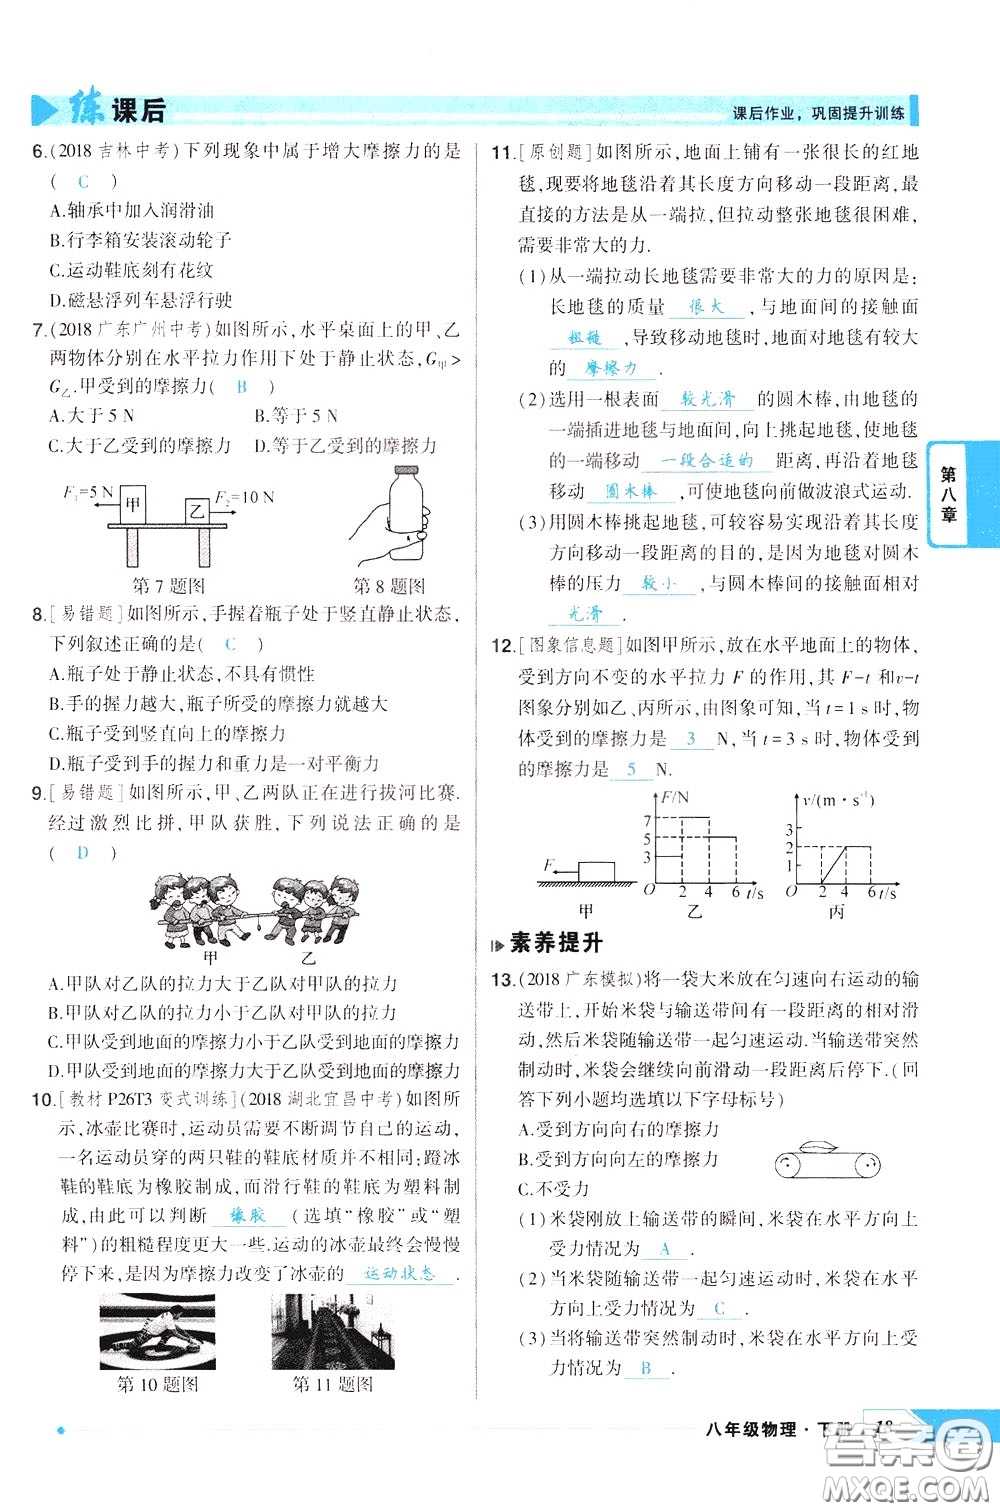 练课后
课后作业，巩固提升训练
6.(2018吉林中考)下列现象中属于增大摩擦力的是
( C )
A.轴承中加入润滑油
B.行李箱安装滚动轮子
C.运动鞋底刻有花纹
D.磁悬浮列车悬浮行驶
7.(2018广东广州中考)如图所示,水平桌面上的甲、乙
两物体分别在水平拉力作用下处于静止状态,G甲>
G乙.甲受到的摩擦力( B )
A.大于5 N B.等于5 N
C.大于乙受到的摩擦力 D.等于乙受到的摩擦力
F₁=5 N 甲 乙 F₂=10 N
第7题图 第8题图
8.[易错题]如图所示,手握着瓶子处于竖直静止状态,
下列叙述正确的是( C )
A.瓶子处于静止状态,不具有惯性
B.手的握力越大,瓶子所受的摩擦力就越大
C.瓶子受到竖直向上的摩擦力
D.瓶子受到手的握力和重力是一对平衡力
9.[易错题]如图所示,甲、乙两队正在进行拔河比赛.
经过激烈比拼,甲队获胜,下列说法正确的是
( D )
甲 乙
A.甲队对乙队的拉力大于乙队对甲队的拉力
B.甲队对乙队的拉力小于乙队对甲队的拉力
C.甲队受到地面的摩擦力小于乙队受到地面的摩擦力
D.甲队受到地面的摩擦力大于乙队受到地面的摩擦力
10.[教材P26T3变式训练](2018湖北宜昌中考)如图所
示,冰壶比赛时,运动员需要不断调节自己的运动,
一名运动员穿的两只鞋的鞋底材质并不相同:蹬冰
鞋的鞋底为橡胶制成,而滑行鞋的鞋底为塑料制
成,由此可以判断 橡胶 (选填“橡胶”或“塑
料”)的粗糙程度更大一些.运动的冰壶最终会慢慢
停下来,是因为摩擦力改变了冰壶的 运动状态 .
第10题图 第11题图
11.[原创题]如图所示,地面上铺有一张很长的红地
毯,现要将地毯沿着其长度方向移动一段距离,最
直接的方法是从一端拉,但拉动整张地毯很困难,
需要非常大的力.
(1)从一端拉动长地毯需要非常大的力的原因是:
长地毯的质量 很大 ,与地面间的接触面
粗糙 ,导致移动地毯时,地面对地毯有较大
的 摩擦力 .
(2)选用一根表面 较光滑 的圆木棒,由地毯的
一端插进地毯与地面间,向上挑起地毯,使地毯
的一端移动 一段合适的 距离,再沿着地毯
移动 圆木棒 ,可使地毯向前做波浪式运动.
(3)用圆木棒挑起地毯,可较容易实现沿着其长度
方向移动一段距离的目的,是因为地毯对圆木
棒的压力 较小 ,与圆木棒间的接触面相对
光滑 .
12.[图象信息题]如图甲所示,放在水平地面上的物体,
受到方向不变的水平拉力F的作用,其F-t和v-t
图象分别如乙、丙所示,由图象可知,当t=1 s时,物
体受到的摩擦力是 3 N,当t=3 s时,物体受到
的摩擦力是 5 N.
F
甲
F/N
7
5
3
O 2 4 6 t/s
乙
v/(m·s⁻¹)
3
2
1
O 2 4 6 t/s
丙
素养提升
13.(2018广东模拟)将一袋大米放在匀速向右运动的输
送带上,开始米袋与输送带间有一段距离的相对滑
动,然后米袋随输送带一起匀速运动.当输送带突然
制动时,米袋会继续向前滑动一段距离后停下.(回
答下列小题均选填以下字母标号)
A.受到方向向右的摩擦力
B.受到方向向左的摩擦力
C.不受力
(1)米袋刚放上输送带的瞬间,米袋在水平方向上
受力情况为 A .
(2)当米袋随输送带一起匀速运动时,米袋在水平
方向上受力情况为 C .
(3)当将输送带突然制动时,米袋在水平方向上受
力情况为 B .
第八章
八年级物理·下册 18
答案圈
MXQE.COM